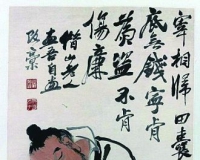 宰相歸田囊
底無錢寧肯
為盜不肯
傷廉
借山老人